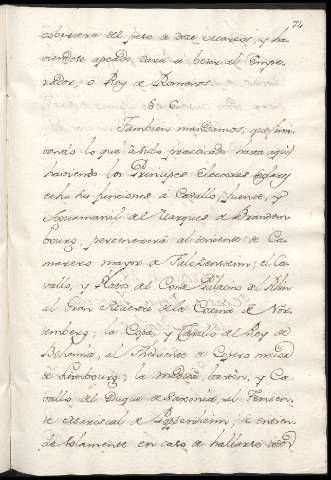 74
cobertera del peso de doze marcos, y ha
viendose apeado, dará a beber al Empe
rador, ó Rey de Romanos.
§ 6.
Tambien mandamos, que
lo que à sido practicado hasta aqui
haviendo los Principes Electores seglares
echo sus funciones à Cavallo, fuente, y
del Marques de Brandem
bourg, pertenecerá al teniente de Ca
marero mayor de Falckenstein; el Ca
vallo, y Platos del Conde Palatino del Rhin
al Gran Maestre de la Cocina de Nor
temberg; la Copa, y Cavallo del Rey de
Bohemia, al Theniente de Copero maior
de Limbourg; la medida, baston, y Ca
vallo del Duque de Saxonia, al Tenien
te Mariscal de Pappenheim; se entien
de solamente en caso de hallarse